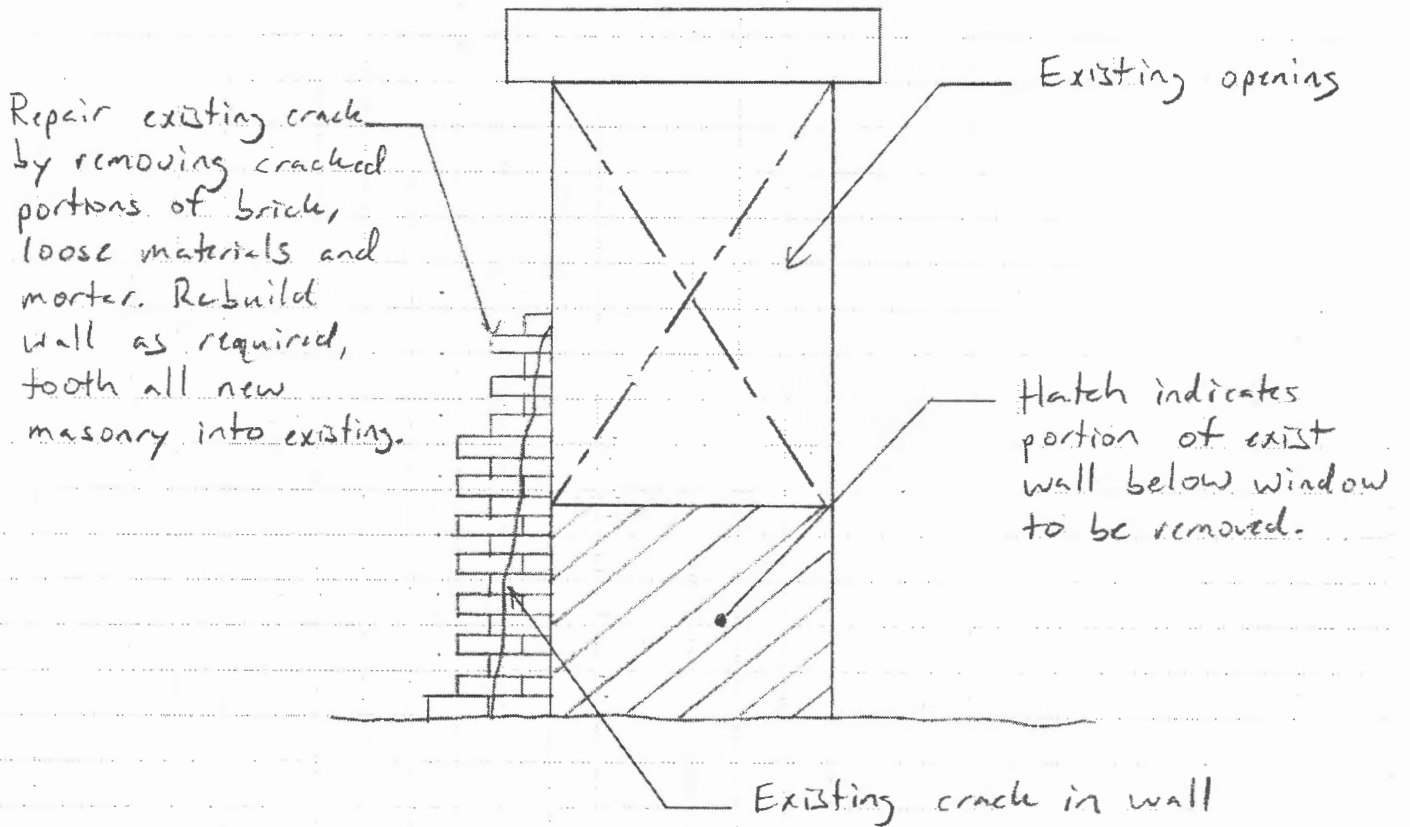 Existing opening
Repair existing crack
by removing cracked
portions of brick,
loose materials and
mortar. Rebuild
wall as required,
tooth all new
masonry into existing.
Hatch indicates
portion of exist
wall below window
to be removed.
Existing crack in wall